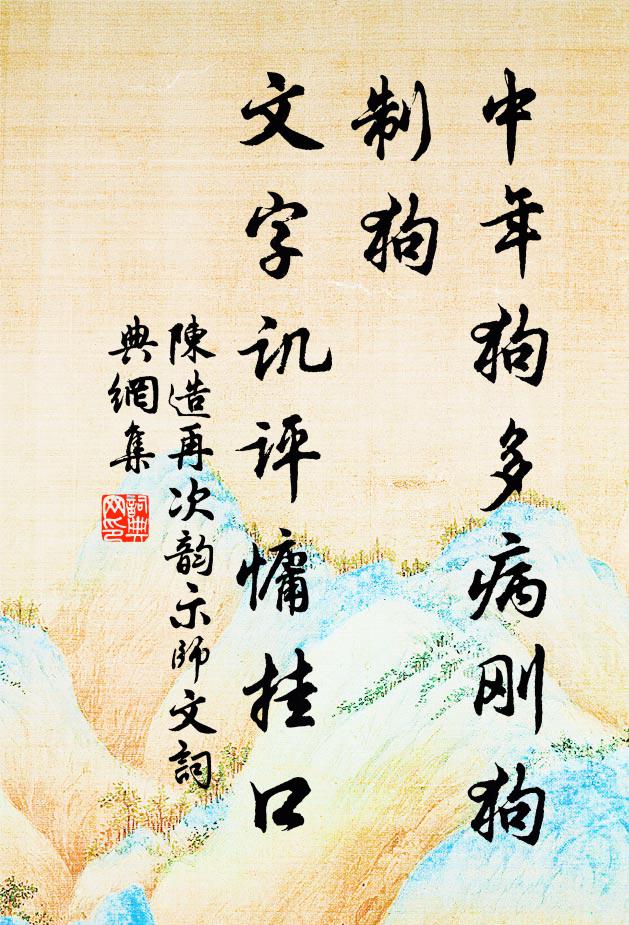 中年狗多病刚狗
制狗
文字讥评慵挂口
陳造再次韵示師文詞
典網集
詞典
网印